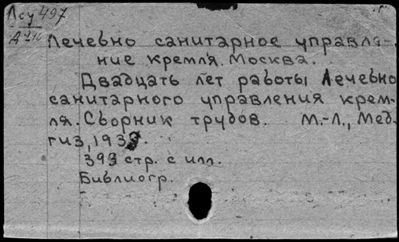 Лсу 497
Лечебно санитарное управле-
ние кремля. Москва.
Двадцать лет работы Лечебно
санитарного управления крем-
ля. Сборник трудов. М.-Л., Мед-
гиз, 1939.
393 стр. с илл.
Библиогр.